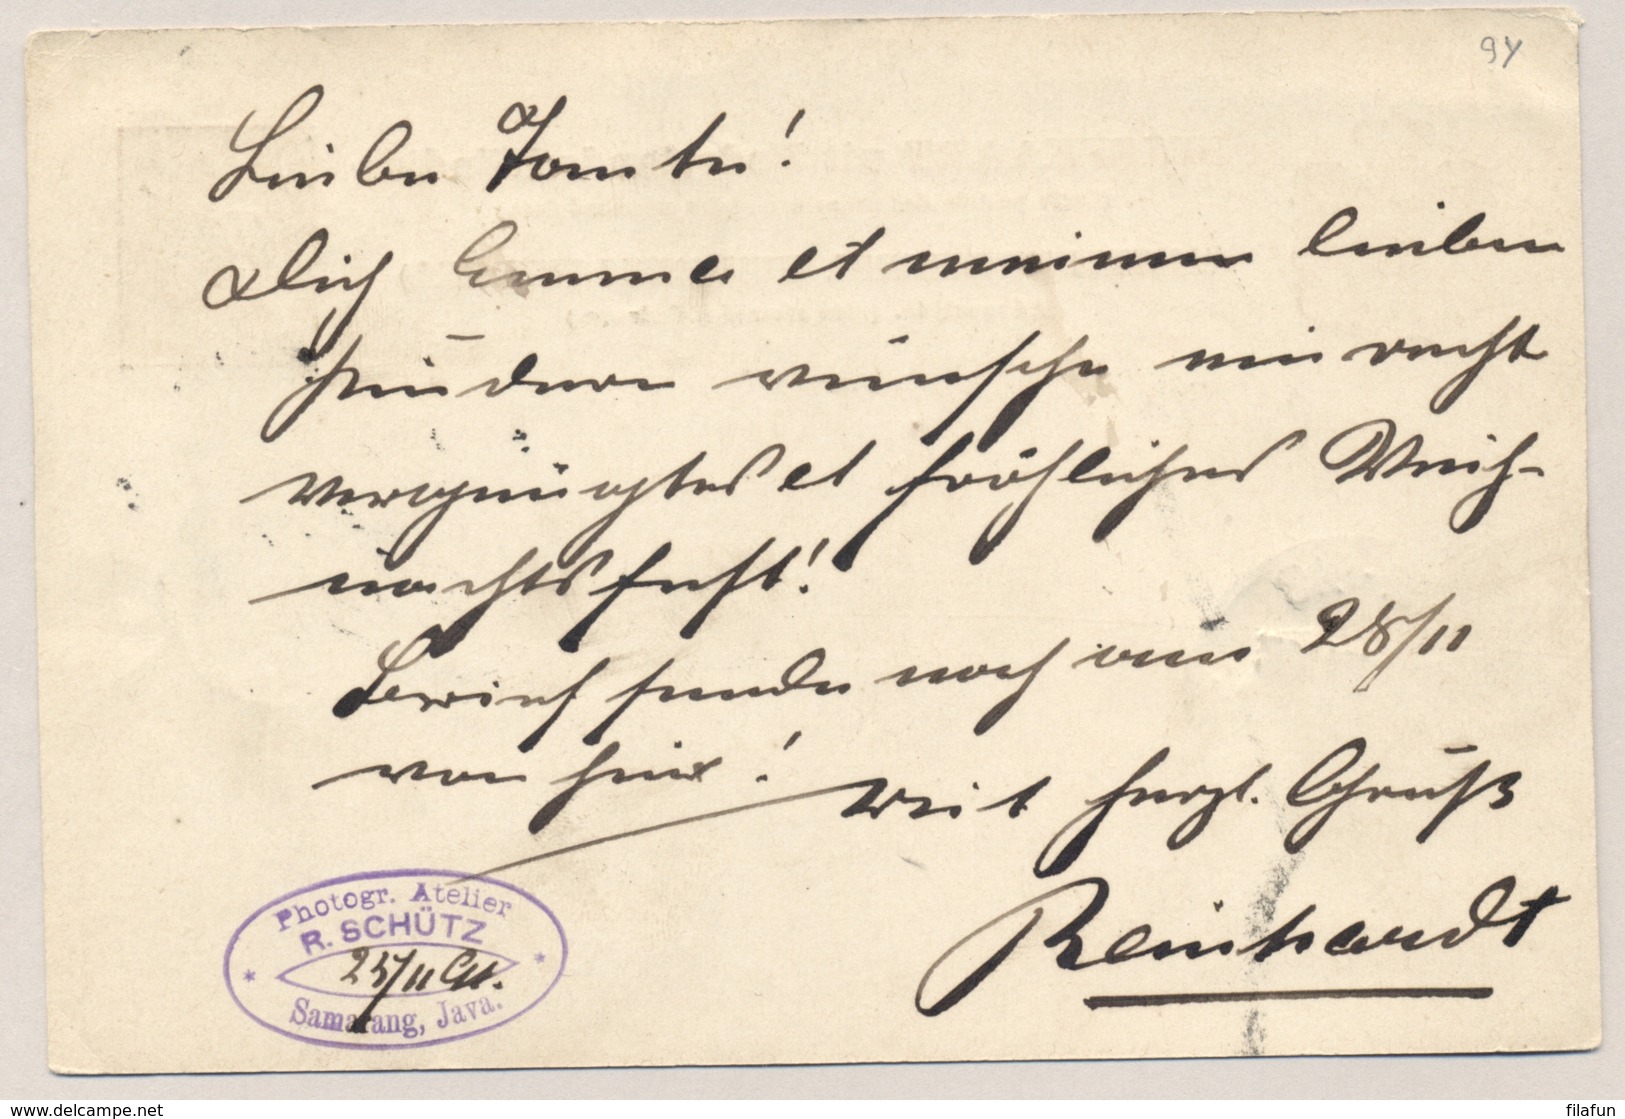 94
Liebe Tante!
Dich Emma et meinen lieben
Brüdern wünsche ein recht
vergnügtes et fröhliches Weih-
nachtsfest!
Brief sende noch am 28/11
von hier!
Mit herzl. Gruß
Reinhardt
Photogr. Atelier
R. SCHÜTZ
25/11
Samarang, Java.
www.delcampe.net
filafun